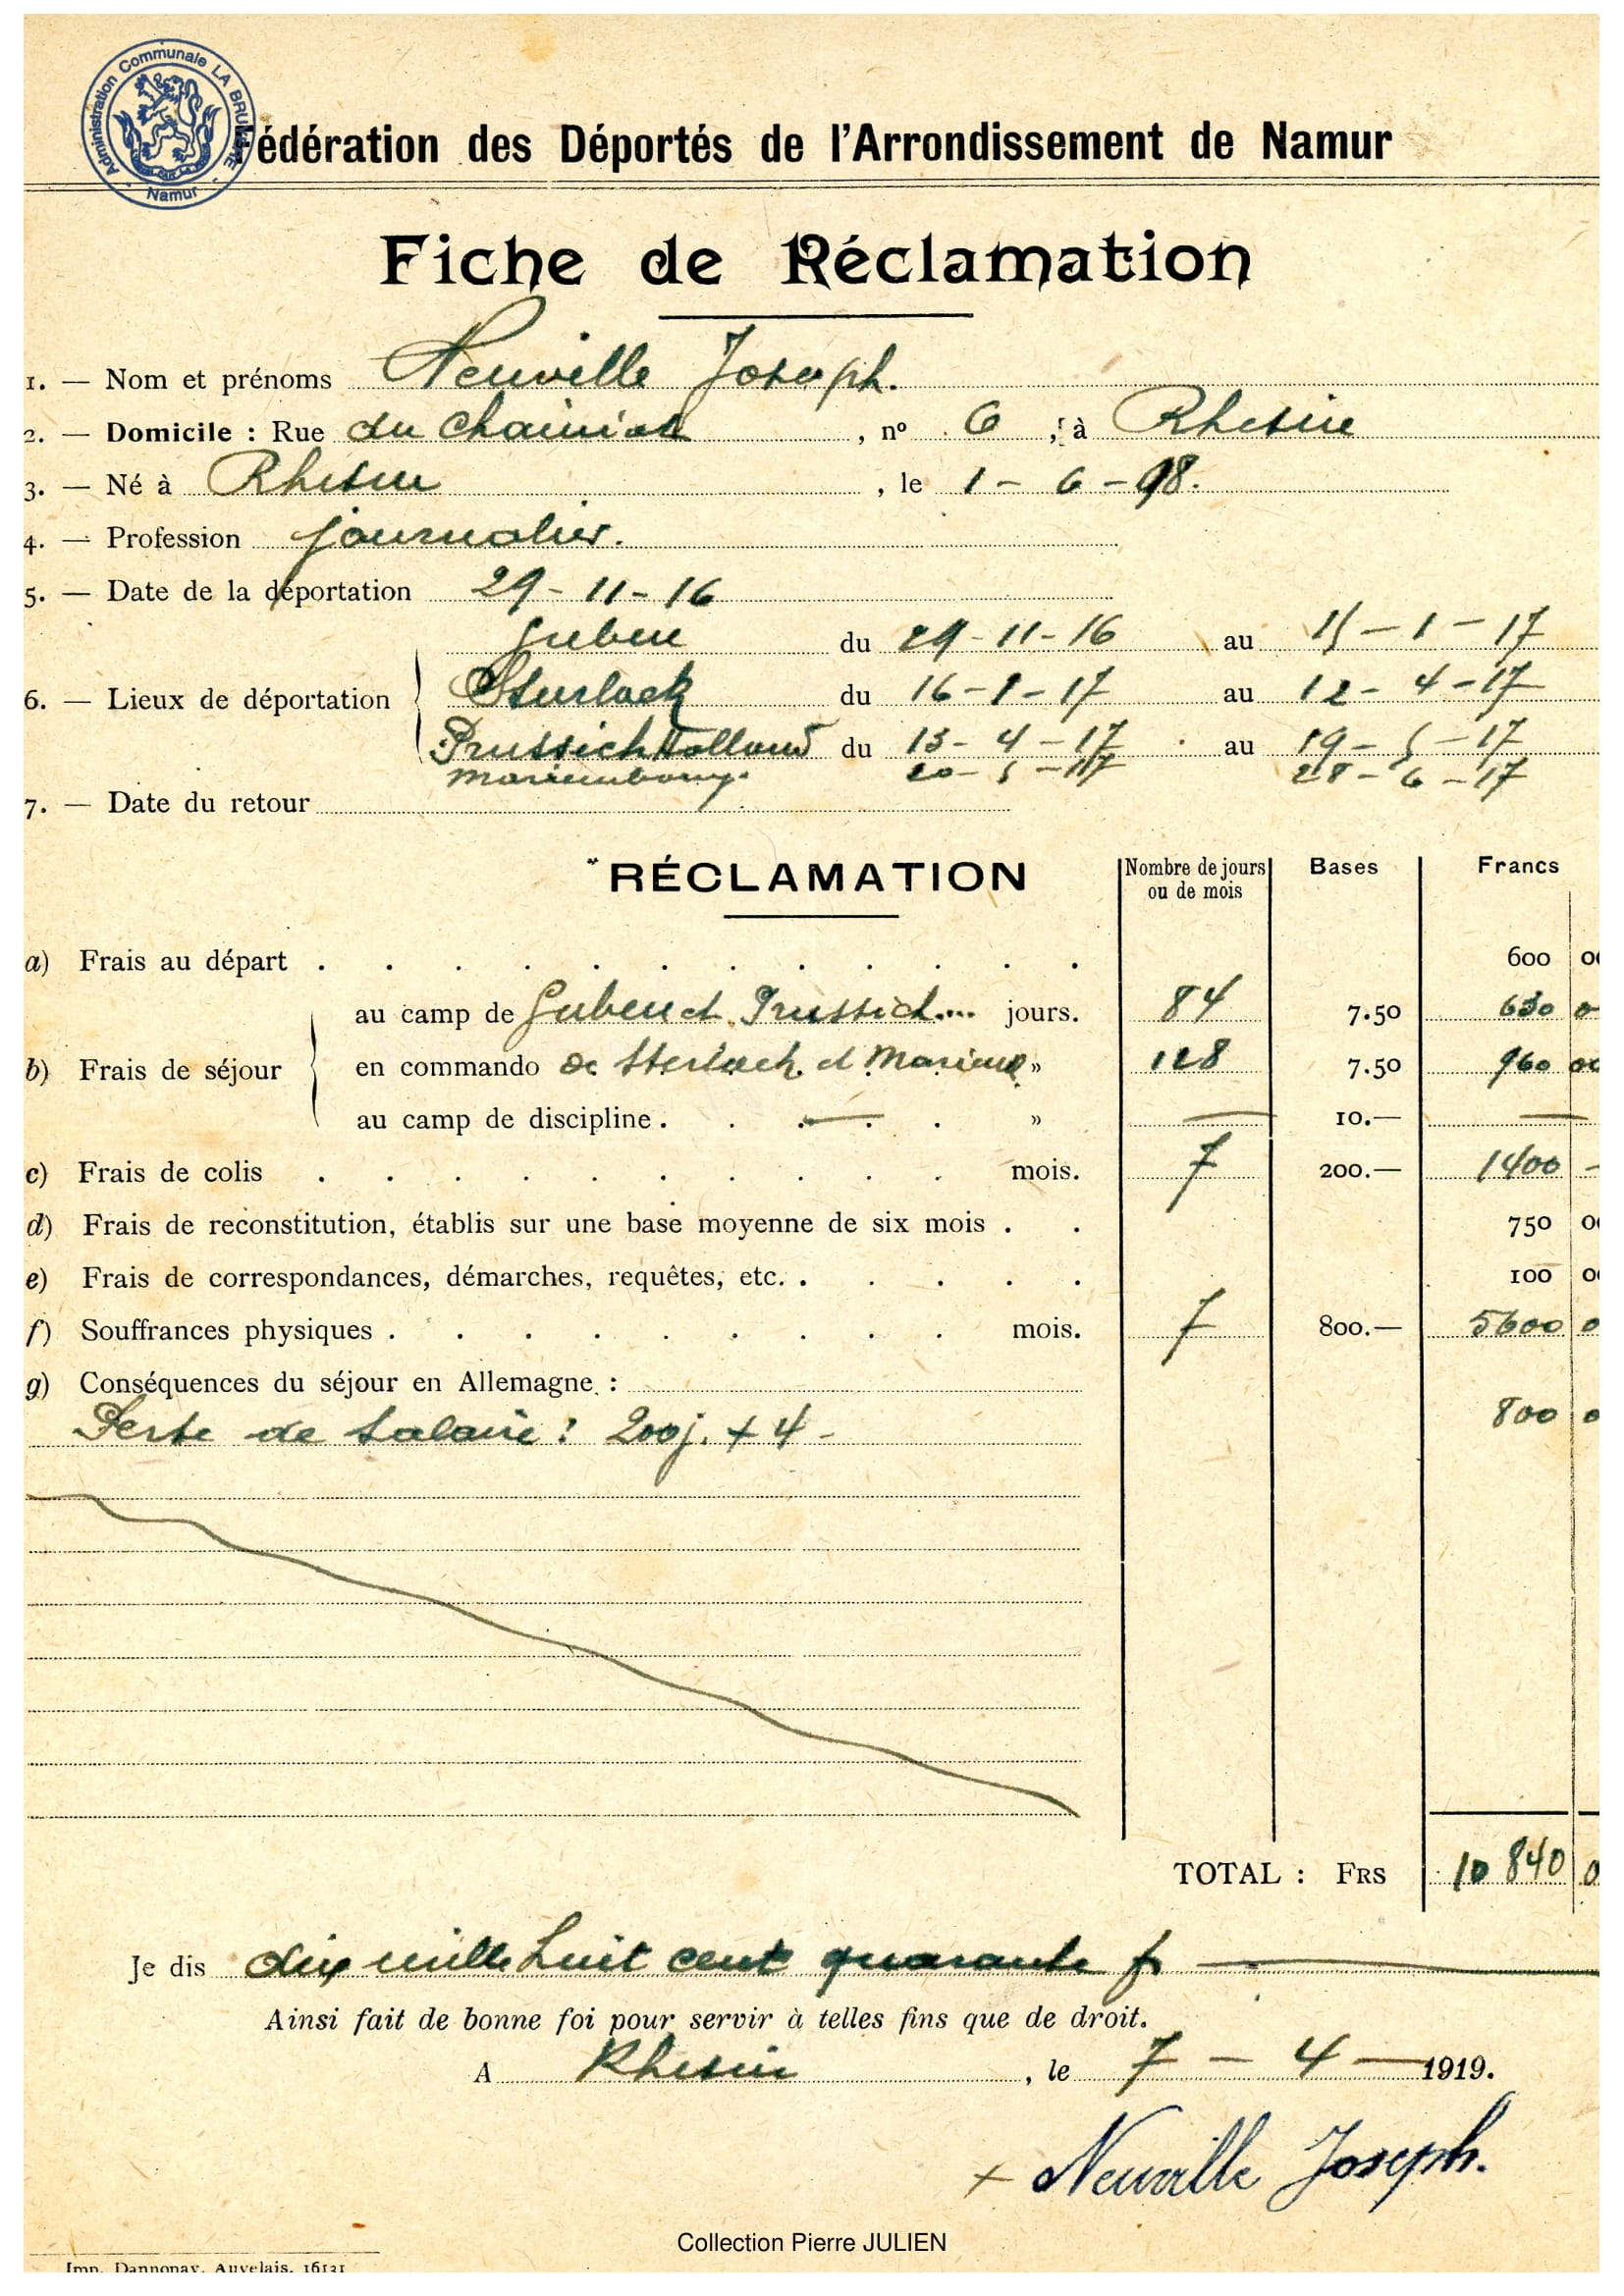 Administration Communale LA BRUYÈRE
- Namur -
Fédération des Déportés de l'Arrondissement de Namur
Fiche de Réclamation
1. — Nom et prénoms Neuville Joseph.
2. — Domicile : Rue du Chainiat, n° 6, à Rhisne
3. — Né à Rhisne, le 1 - 6 - 98.
4. — Profession journalier.
5. — Date de la déportation 29 - 11 - 16
Guben du 29 - 11 - 16 au 15 - 1 - 17
6. — Lieux de déportation Sterlack du 16 - 1 - 17 au 12 - 4 - 17
Prussich Holland du 13 - 4 - 17 au 19 - 5 - 17
Marienbourg. 20 - 5 - 17 28 - 6 - 17
7. — Date du retour
RÉCLAMATION Nombre de jours ou de mois Bases Francs
a) Frais au départ . . . . . . . . . . . . 600 00
au camp de Guben et Prussich... jours. 84 7.50 630 0
b) Frais de séjour en commando de Sterlack et Marienb » 128 7.50 960 00
au camp de discipline . . — . . » — 10.— —
c) Frais de colis . . . . . . . . . . mois. 7 200.— 1400 -
d) Frais de reconstitution, établis sur une base moyenne de six mois . . 750 00
e) Frais de correspondances, démarches, requêtes, etc. . . . . . 100 00
f) Souffrances physiques . . . . . . . . . mois. 7 800.— 5600 0
g) Conséquences du séjour en Allemagne :
Perte de salaire : 200 j. + 4 - 800 0
TOTAL : FRS 10 840 0
Je dis dix mille huit cent quarante fr —
Ainsi fait de bonne foi pour servir à telles fins que de droit.
A Rhisne, le 7 - 4 - 1919.
+ Neuville Joseph.
Collection Pierre JULIEN
Imp. Dannonay, Auvelais. 16131